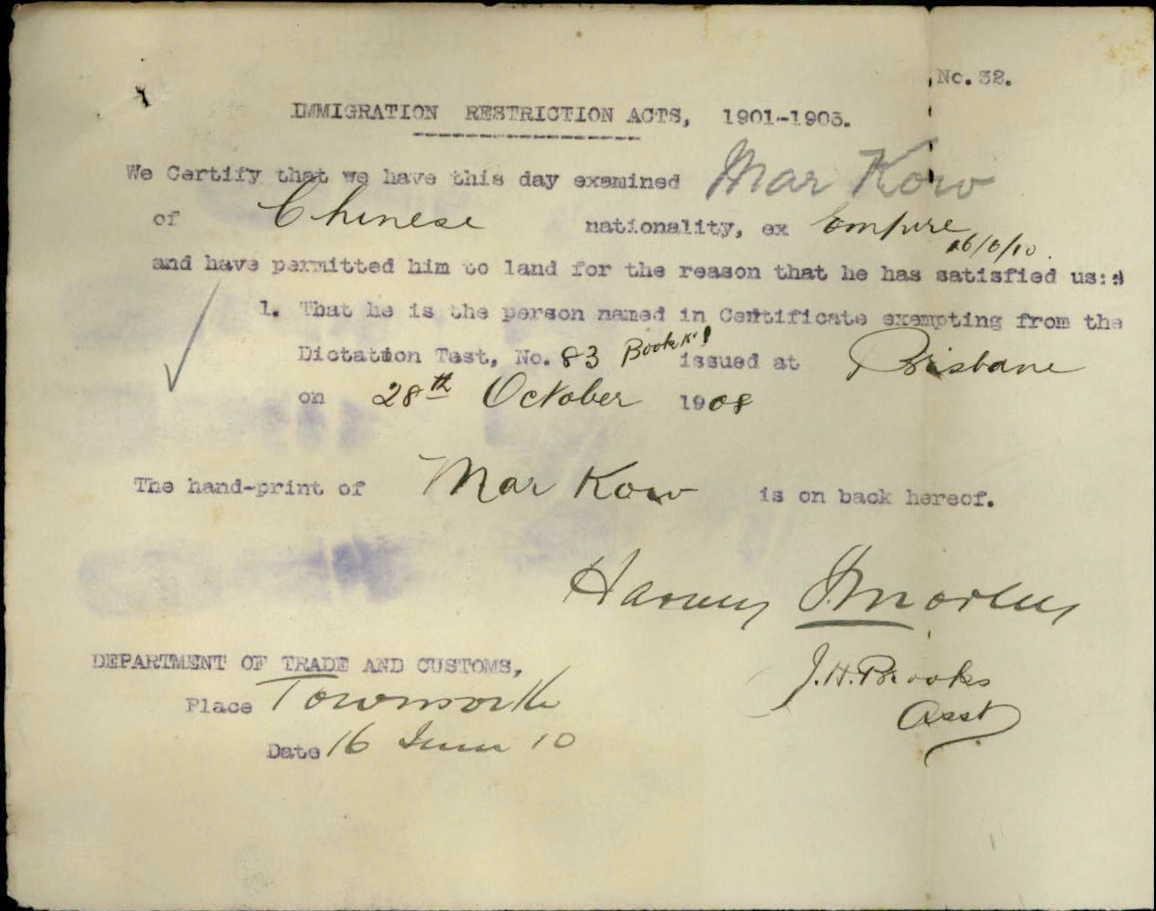 No. 32.
IMMIGRATION RESTRICTION ACTS, 1901-1903.
We Certify that we have this day examined Mar Kow
of Chinese nationality, ex Empire
16/6/10.
and have permitted him to land for the reason that he has satisfied us:-
1. That he is the person named in Certificate exempting from the
Dictation Test, No. 83 Book No 1 issued at Brisbane
on 28th October 1908
The hand-print of Mar Kow is on back hereof.
Harvey
J. H. Brooks
Asst
DEPARTMENT OF TRADE AND CUSTOMS,
Place
Date 16 June 10